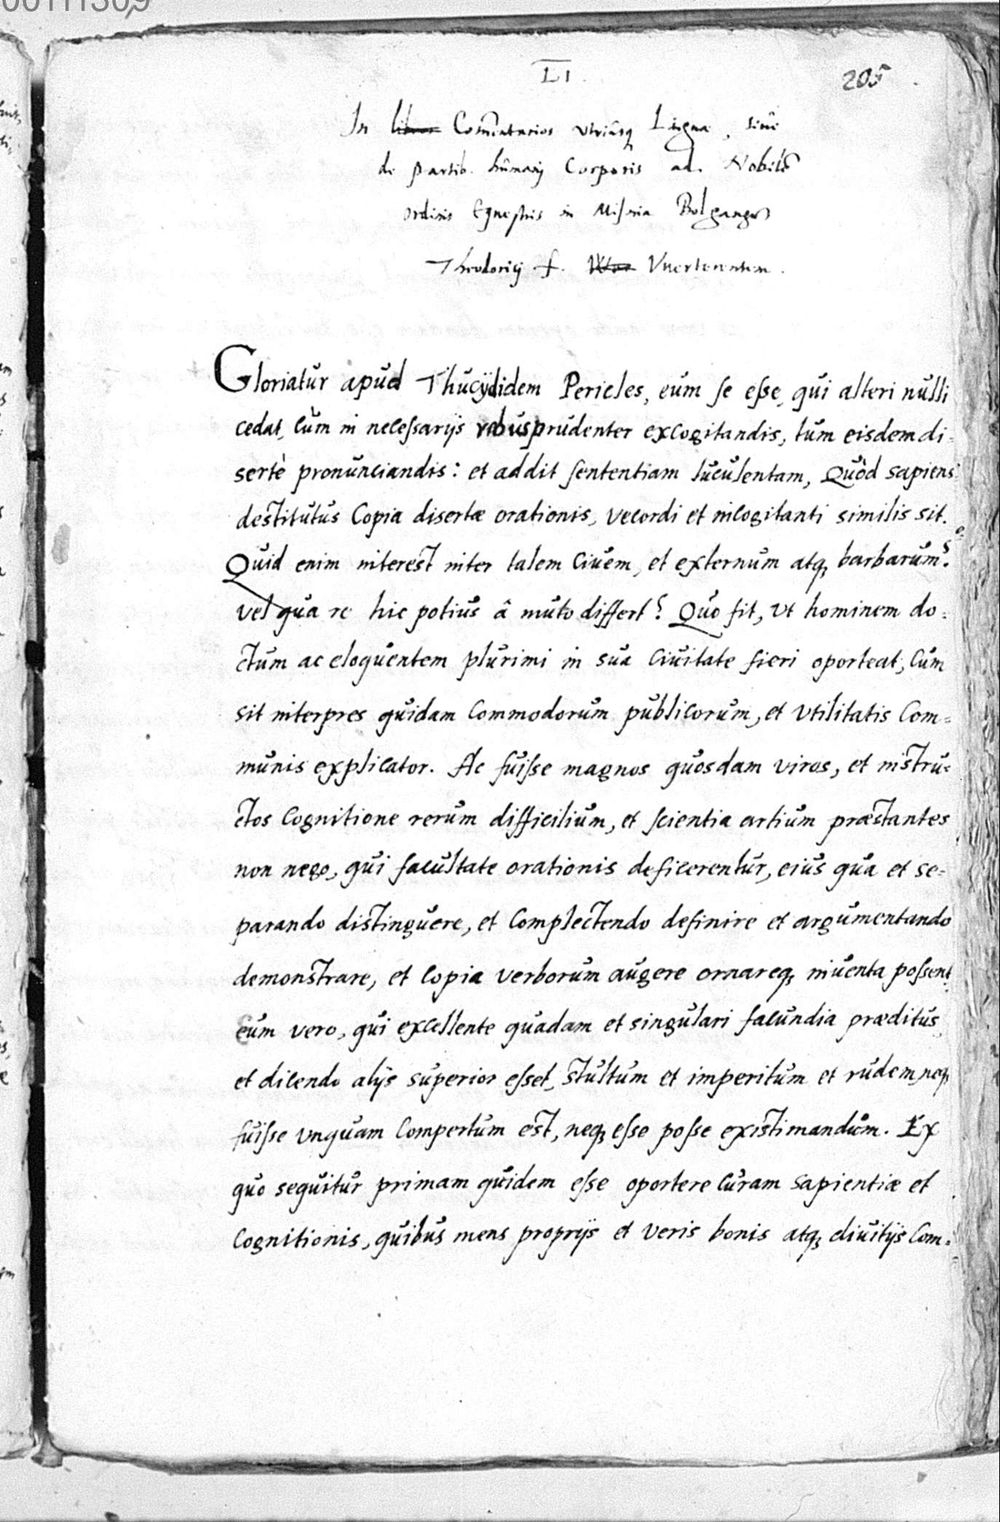 00111309
LI.
205
In libros Com̃entarios vtriusq; Linguæ, siue
de Partib. humanj Corporis ad Nobilẽ
ordinis Equestris in Misnia Bolgangũ
Theodoricj f. Wer Vuerterensem.
Gloriatur apud Thucÿdidem Pericles, eum se esse, qui alteri nulli
cedat, cum in necessarijs rebus prudenter excogitandis, tum eisdem di-
sertè pronunciandis: et addit sententiam luculentam, Quòd sapiens
destitutus copia disertæ orationis, vecordi et incogitanti similis sit.
Quid enim interest inter talem ciuem, et externum atq; barbarum?
vel qua re hic potius â muto differt? Quo fit, vt hominem do-
ctum ac eloquentem plurimi in sua ciuitate fieri oporteat, cum
sit interpres quidam commodorum publicorum, et vtilitatis com-
munis explicator. Ac fuisse magnos quosdam viros, et instru-
ctos cognitione rerum difficilium, et scientia artium præstantes
non nego, qui facultate orationis deficerentur, eius qua et se-
parando distinguere, et complectendo definire et argumentando
demonstrare, et copia verborum augere ornareq; inuenta possent,
eum vero, qui excellente quadam et singulari facundia præditus,
et dicendo alijs superior esset, stultum et imperitum et rudem neq;
fuisse vnquam compertum est, neq; esse posse existimandum. Ex
quo sequitur primam quidem esse oportere curam sapientiæ et
cognitionis, quibus mens proprijs et veris bonis atq; diuitijs com-